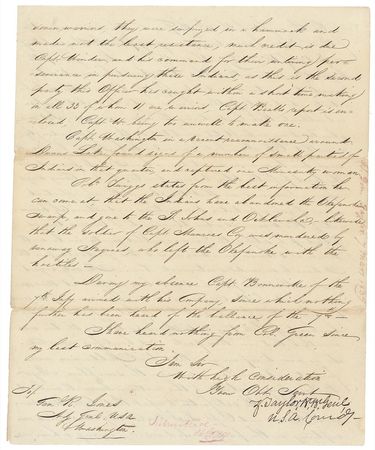 seven warriors they were surprized in a hammock and
made not the least resistance, much credit is due
Capt. Winder, and his command for their untiring perse-
verance in pursuing these Indians, as this is the second
party this Officer has caught within a short time making
in all 33 of whom 11 are warriors Capt Bealls report is en-
closed, Capt W. being too unwell to make one.
Capt. Washington in a recent reconnoissance around
Dunns Lake found signs of a number of small parties of
Indians in that quarter, and captured one Uchee woman
Col. Twiggs states from the best information he
can come at that the Indians have abandoned the Okefenoke
Swamp, and gone to the and likewise
that the Soldier of Capt Co. was murdered by
runaway Negroes who left the Okefenoke with the
hostiles —
During my absence Capt. Bonneville of the
7th Infy arrived with his Company since which nothing
further has been heard of the balance of the 7th —
I have heard nothing from Col. Green since
my last communication
I am Sir
With high Consideration
Your Obt. Servt
Z. Taylor Bt. Br. Genl
U.S.A. Comdg
To
Gen. R. Jones
Adj. Genl. U.S.A.
Washington